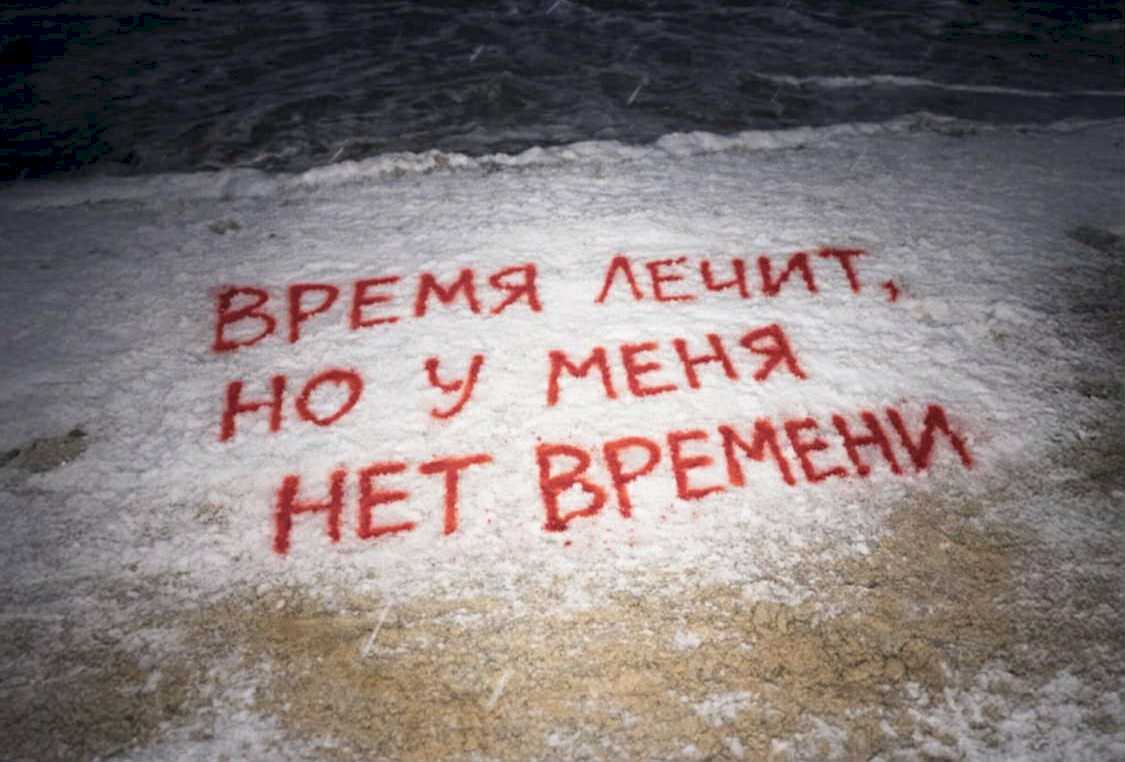 ВРЕМЯ ЛЕЧИТ,
НО У МЕНЯ
НЕТ ВРЕМЕНИ